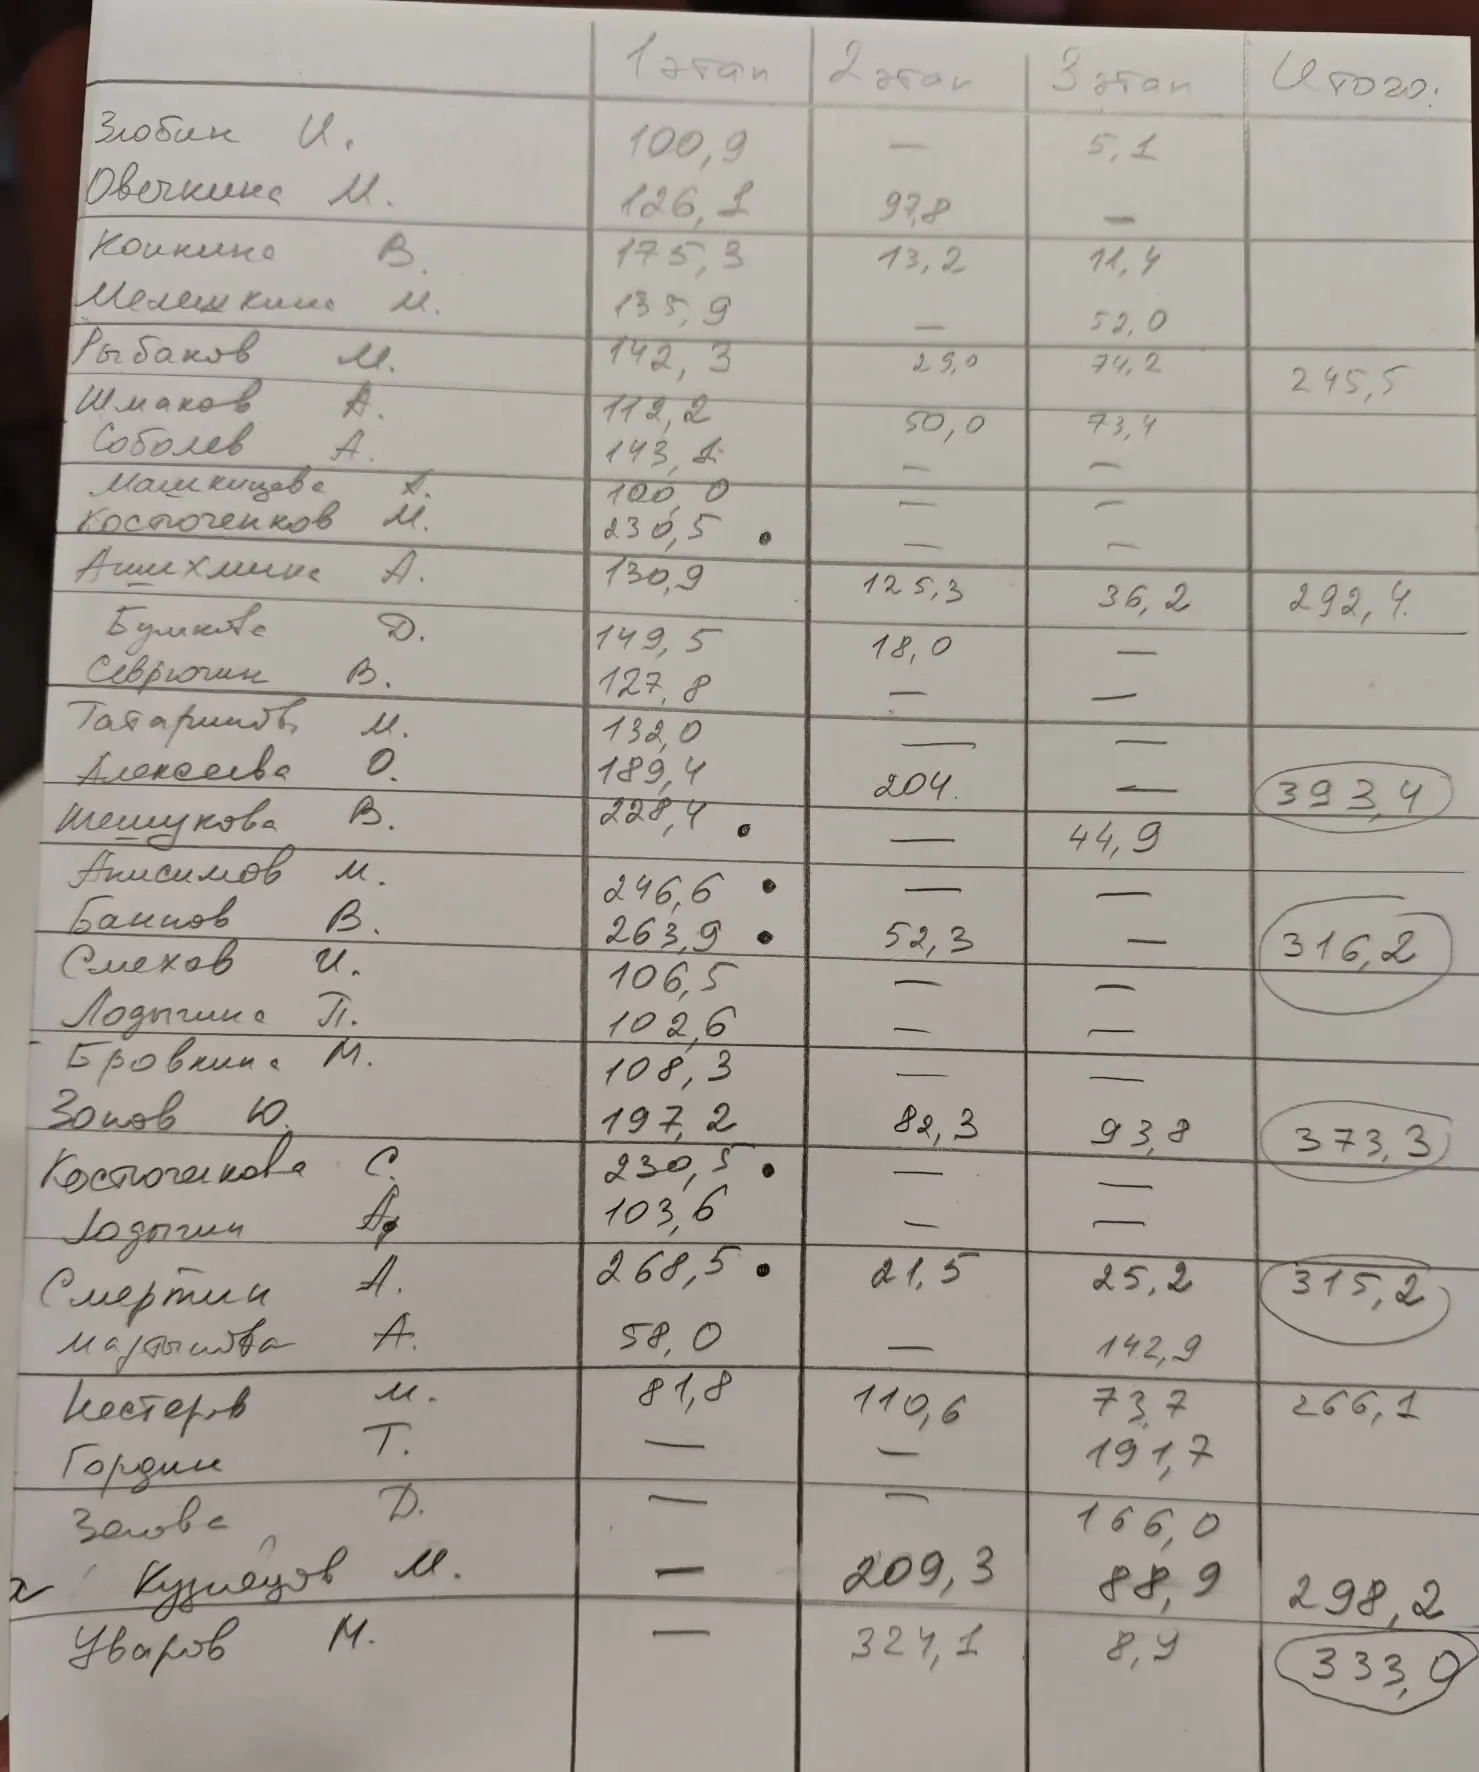 1 этап 2 этап 3 этап Итого:
Злобин И. 100,9 — 5,1
Овечкина М. 126,1 97,8 —
Конкина В. 175,3 13,2 11,4
Мелешкина М. 135,9 — 52,0
Рыбаков М. 142,3 29,0 74,2 245,5
Шмаков А. 112,2 50,0 73,4
Соболев А. 143,1 — —
Машкицева А. 100,0 — —
Костюченков М. 230,5 • — —
Ашихмина А. 130,9 125,3 36,2 292,4.
Д. 149,5 18,0 —
Севрюгин В. 127,8 — —
Татаринов М. 132,0 — —
Алексеева О. 189,4 204. — 393,4
Шешукова В. 228,4 • — 44,9
Анисимов М. 246,6 • — —
Банков В. 263,9 • 52,3 — 316,2
Смехов И. 106,5 — —
Лодыгина П. 102,6 — —
Бровкина М. 108,3 — —
Зонов Ю. 197,2 82,3 93,8 373,3
Костюченкова С. 230,5 • — —
Лодыгин А. 103,6 — —
Смертин А. 268,5 • 21,5 25,2 315,2
Мартынова А. 58,0 — 142,9
Нестеров М. 81,8 110,6 73,7 266,1
Гордин Т. — — 191,7
Зонова Д. — — 166,0
Кузнецов М. — 209,3 88,9 298,2
Уваров М. — 324,1 8,9 333,0